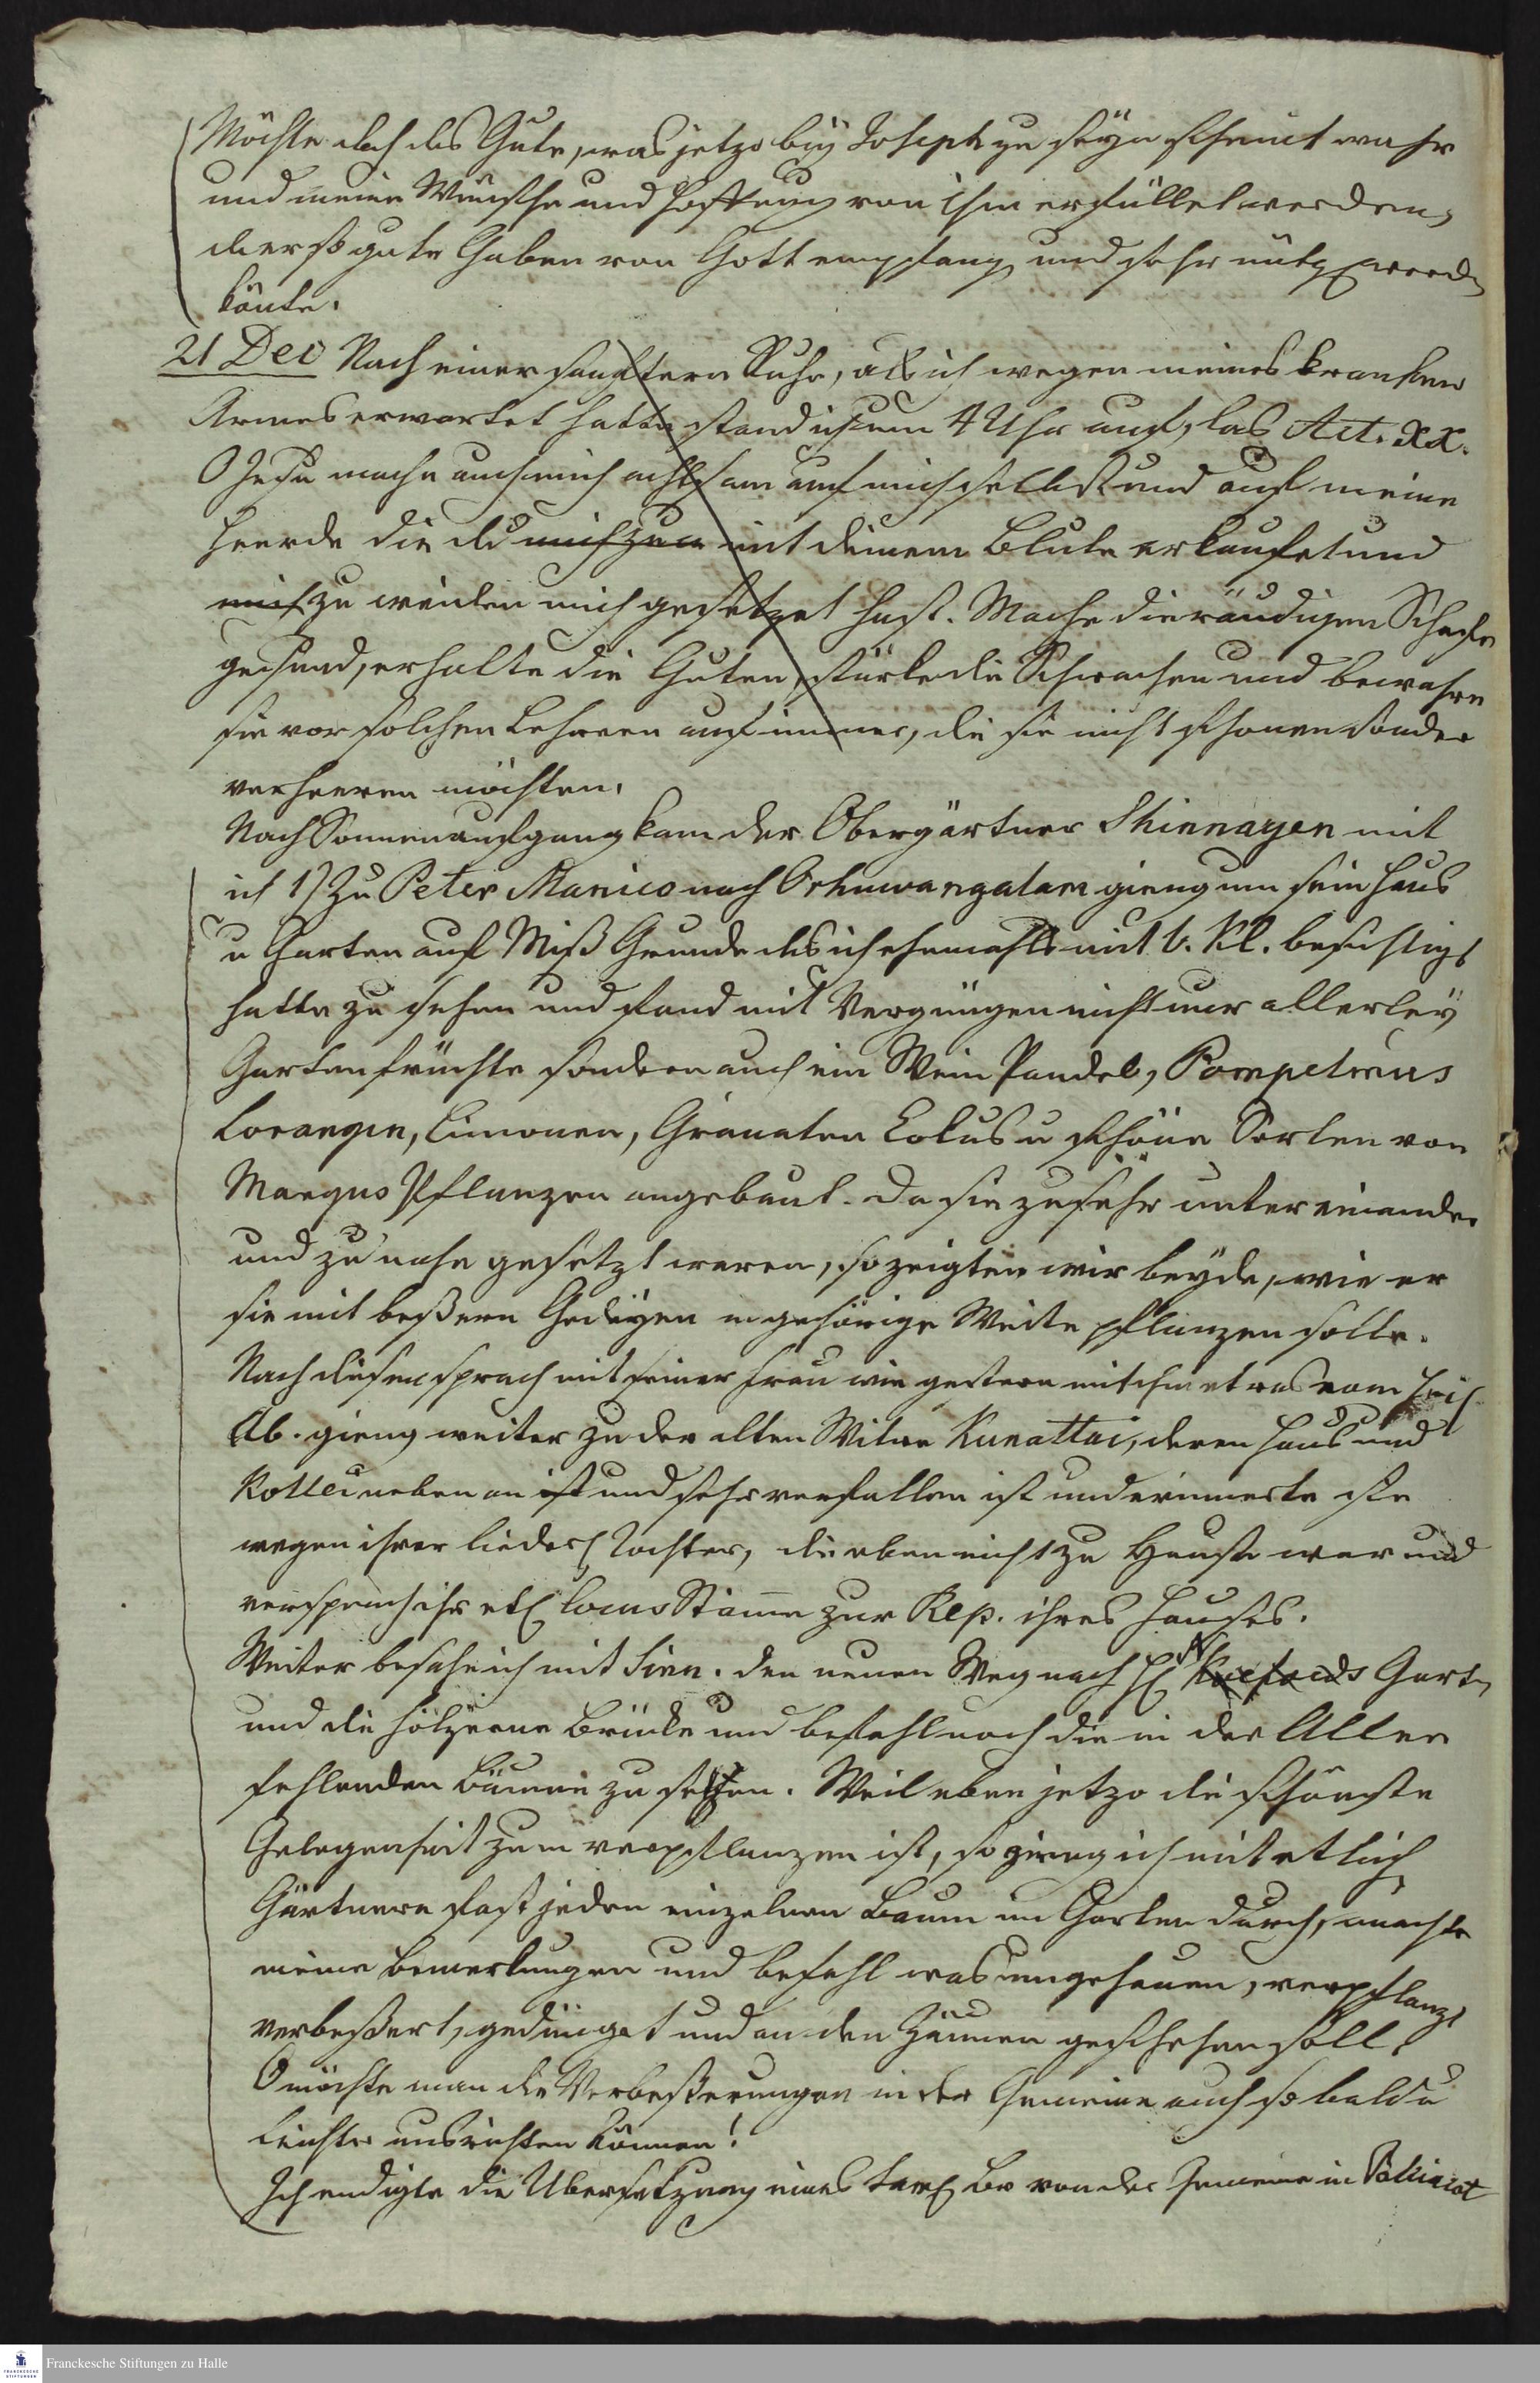 Möchte doch das Gute, was jetzo bey Joseph zu seyn scheint wahr
und meine Wünsche und Hoffnung von ihm erfüllet werden,
der so gute Gaben von Gott empfang und sehr nützl werden
könte.
21 Dec Nach einer sanftern Ruhe, als ich wegen meines kranken
Armes erwartet hatte stand ich um 4 Uhr auf, las Act. XX.
O Jesu mache auch mich achtsam auf mich selbst und auf meine
Heerde die du mich zu mit deinem Blute erkaufet und
mich zu weiden mich gesetzet hast. Mache die räudigen Schafe
gesund, erhalte die Guten, stärke die Schwachen und bewahre
sie vor solchen Lehrern auf immer, die sie nicht schonen sonder
verheeren möchten.
Nach Sonnenaufgang kam der Obergärtner Shinnayen mit
ich 1) zu Peter Manico nach gieng um sein Haus
u Garten auf Miß Grunde das ich ehemahls mit b. Kl. besichtigt
hatte zu sehen und fand mit Vergnügen nicht nur allerley
Gartenfrüchte sondern auch ein Wein Pandel, Pompelmus
Lorangen, Limonen, Granaten Cokus u schöne Sorten von
Mangus Pflanzen angebaut. Da sie zu sehr unter einander
und zu nahe gesetzt waren, so zeigten wir beyde, wie er
sie mit beßern Gedeyen in gehörige Weite pflanzen solte.
Nach diesem sprach mit seiner Frau wie gestern mit ihm etwas vom heil
Ab. gieng weiter zu der alten Witwe Kunattai, deren Haus und
Kottei neben an ist und sehr verfallen ist und erinnerte sie
wegen ihrer liederl Tochter, die eben nicht zu Hause war und
versprach ihr etl Cocus Stämme zur Rep. ihres Hauses.
Weiter besahe ich mit Sinn. den neuen Weg nach H Garten
und die hölzerne Brücke und befahl noch die in der Allee
fehlenden Bäume zu setzen. Weil eben jetzo die schönste
Gelegenheit zum verpflanzen ist, so gieng ich mit etlich
Gärtnern fast jeden einzelnen Baum im Garten durch, machte
meine Bemerkungen und befahl was umgehauen, verpflanzt
verbeßert, gedünget und an den Zäunen geschehen soll.
O möchte man die Verbeßerungen in der Gemeine auch so bald u
leichte ausrichten können!
Ich endigte die Ubersetzung eines tam. Br von der Gemeine in Paliacat
Franckesche Stiftungen zu Halle